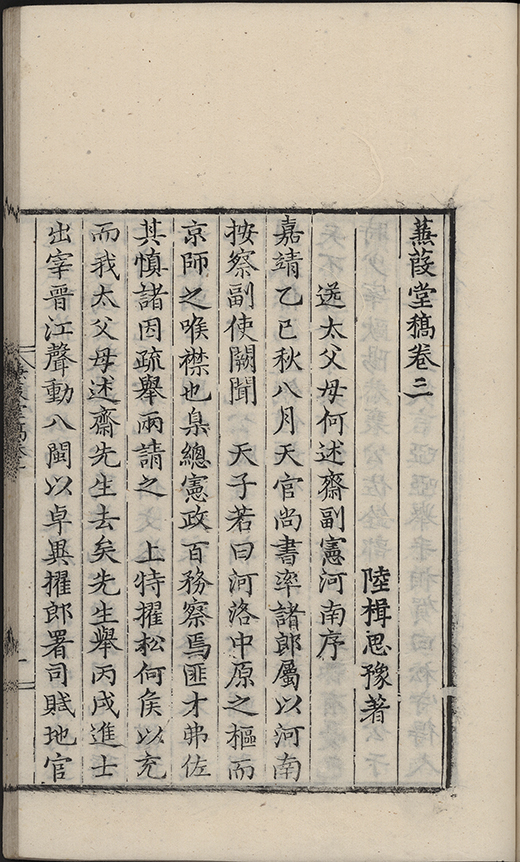 蒹葭堂稿卷二
陸楫思豫著
送太父母何述齋副憲河南序
嘉靖乙巳秋八月天官尚書率諸郎屬以河南
按察副使闕聞 天子若曰河洛中原之樞而
京師之喉襟也臬總憲政百務察焉匪才弗佐
其慎諸因疏舉兩請之 上特擢松何矦以充
而我太父母述齋先生去矣先生舉丙戌進士
出宰晉江聲動八閩以卓異擢郎署司賦地官